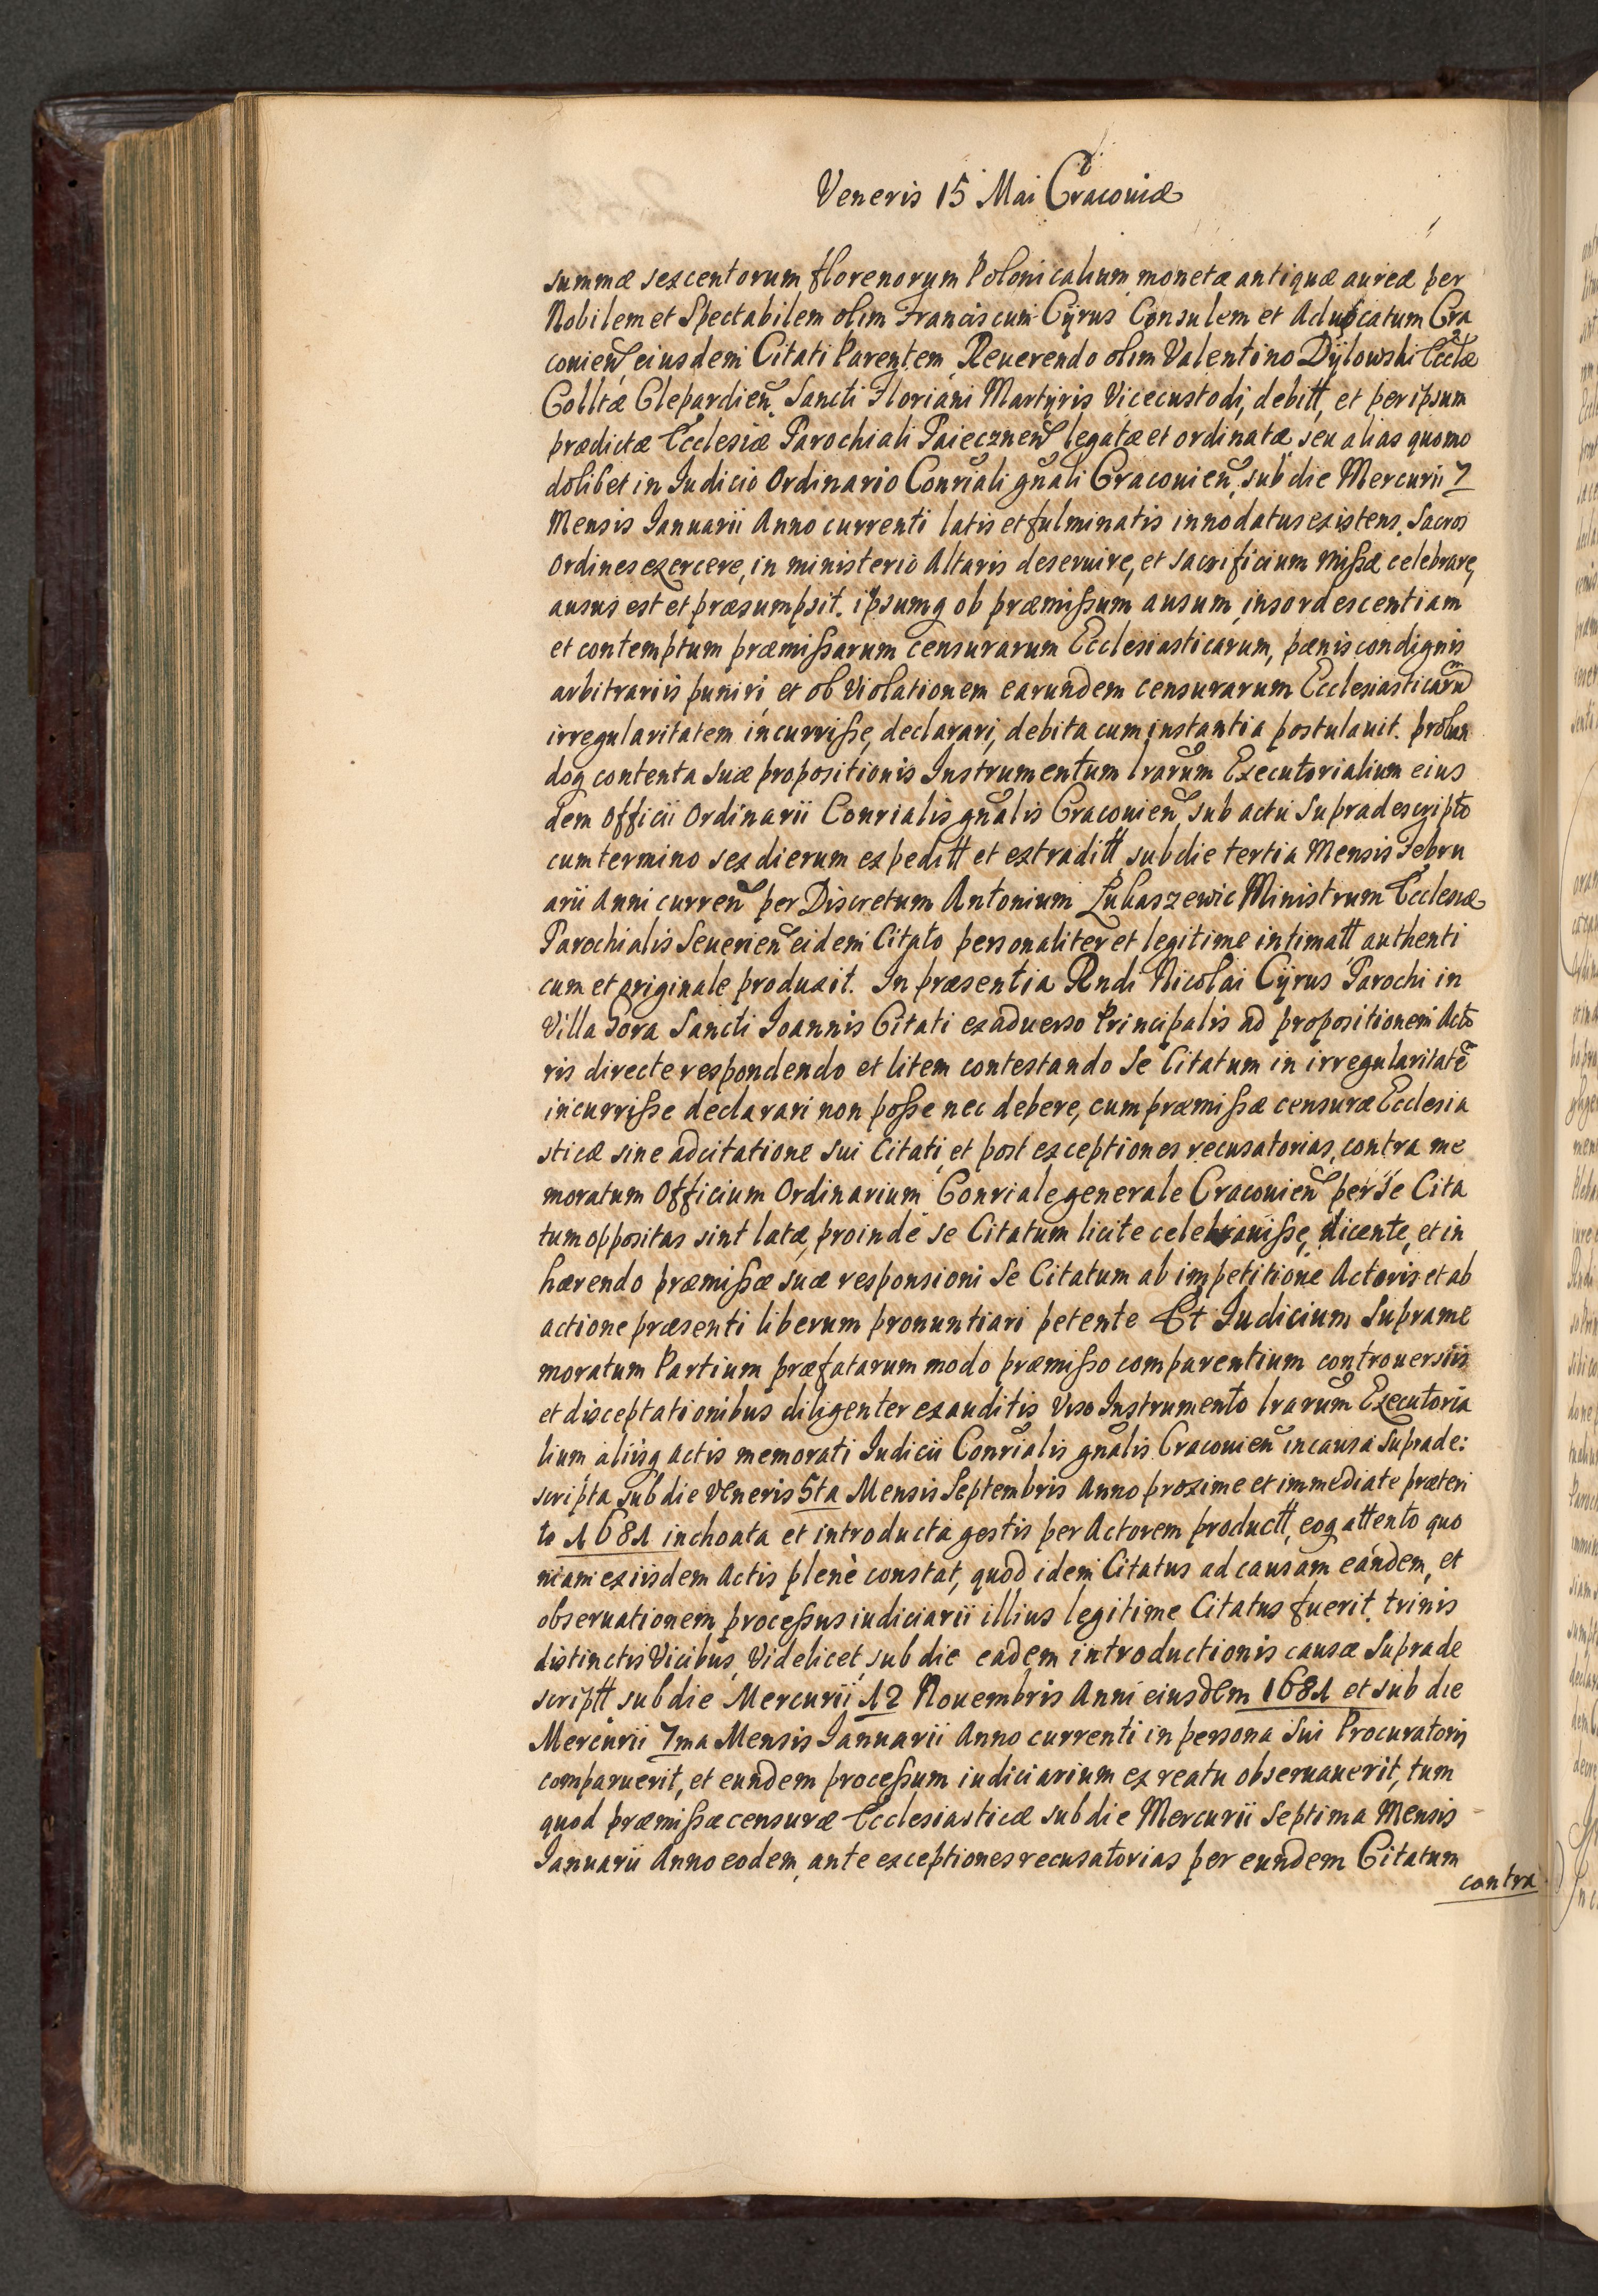 Veneris 15 Mai Cracouiæ
summæ sexcentorum florenorum Polonicalium monetæ antiquæ aureæ per
Nobilem et Spectabilem olim Franciscum Cÿrus Consulem et Aduocatum Cra
couien̄ eiusdem Citati Parentem Reuerendo olim Valentino Dÿlowski Eccłæ
Colltæ Clepardien̄ Sancti Floriani Martÿris Vicecustodi, debitt, et per ipsum
prædictæ Ecclesiæ Parochiali Paiecznen̄ legatæ et ordinatæ seu alias quomo
dolibet in Iudicio Ordinario Conriali gn̄ali Cracouien̄, sub die Mercurii 7
Mensis Ianuarii Anno currenti latis et fulminatis innodatus existens. Sacros
Ordines exercere, in ministerio Altaris deseruire, et sacrificium Missæ celebrare,
ausus est et præsumpsit. ipsumq ob præmissum ausum, insordescentiam
et contemptum præmissarum censurarum Ecclesiasticarum, pænis condignis
arbitrariis puniri, et ob Violationem earundem censurarum Ecclesiasticarū
irregularitatem incurrisse, declarari, debita cum instantia postulauit. proban
doq contenta suæ propositionis Instrumentum lrarum Executorialium eius
dem Officii Ordinarii Conrialis gn̄alis Cracouien̄ sub actu Supradescripto
cum termino sex dierum expeditt et extraditt sub die tertia Mensis Febru
arii Anni curren̄ per Discretum Antonium Łukaszewic Ministrum Ecclesiæ
Parochialis Seuerien̄ eidem Citato personaliter et legitime intimatt authenti
cum et originale produxit. In præsentia Rndi Nicolai Cÿrus Parochi in
Villa Gora Sancti Ioannis Citati ex aduerso Principalis ad propositionem Acto
ris directe respondendo et litem contestando Se Citatum in irregularitatē
incurrisse declarari non posse nec debere, cum præmissæ censuræ Ecclesia
sticæ sine adcitatione sui Citati, et post exceptiones recusatorias, contra me
moratum Officium Ordinarium Conriale generale Cracouien̄ per Se Cita
tum oppositas sint latæ, proinde se Citatum licite celebrauisse, dicente, et in
hærendo præmissæ suæ responsioni Se Citatum ab impetitione Actoris et ab
actione præsenti liberum pronuntiari petente Et Iudicium Suprame
moratum Partium præfatarum modo præmisso comparentium controuersiis
et disceptationibus diligenter exauditis Viso Instrumento lrarum Executoria
lium aliisq actis memorati Iudicii Conrialis gn̄alis Cracouien̄ in causa Suprade:
scripta sub die Veneris 5ta Mensis Septembris Anno proxime et immediate præteri
to 1681 inchoata et introducta gestis per Actorem productt, eoq attento quo
niam ex iisdem Actis plenè constat, quod idem Citatus ad causam eandem, et
obseruationem processus iudiciarii illius legitime Citatus fuerit, trinis
distinctis Vicibus, Videlicet, sub die eadem introductionis causæ Suprade
scriptt sub die Mercurii 12 Nouembris Anni eiusdem 1681 et sub die
Mercurii 7ma Mensis Ianuarii Anno currenti in persona Sui Procuratoris
comparuerit, et eundem processum iudiciarium ex reatu obseruauerit, tum
quod præmissæ censuræ Ecclesiasticæ sub die Mercurii Septima Mensis
Ianuarii Anno eodem, ante exceptiones recusatorias per eundem Citatum
contra